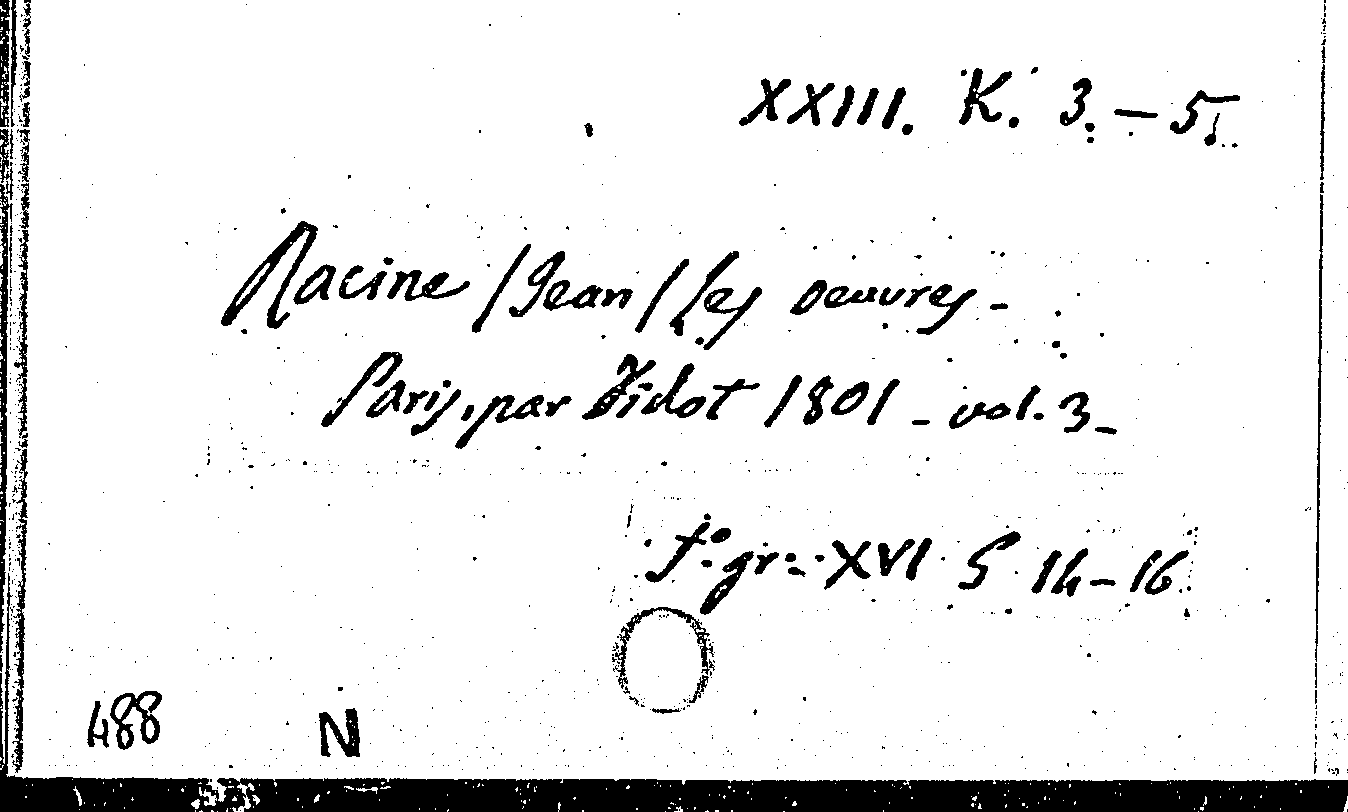 XXIII. K. 3. — 5.
Racine / Jean / Les oeuvres -
Paris, par Didot 1801 - vol. 3 -
f.° gr. - XVI S 14 - 16
488 N